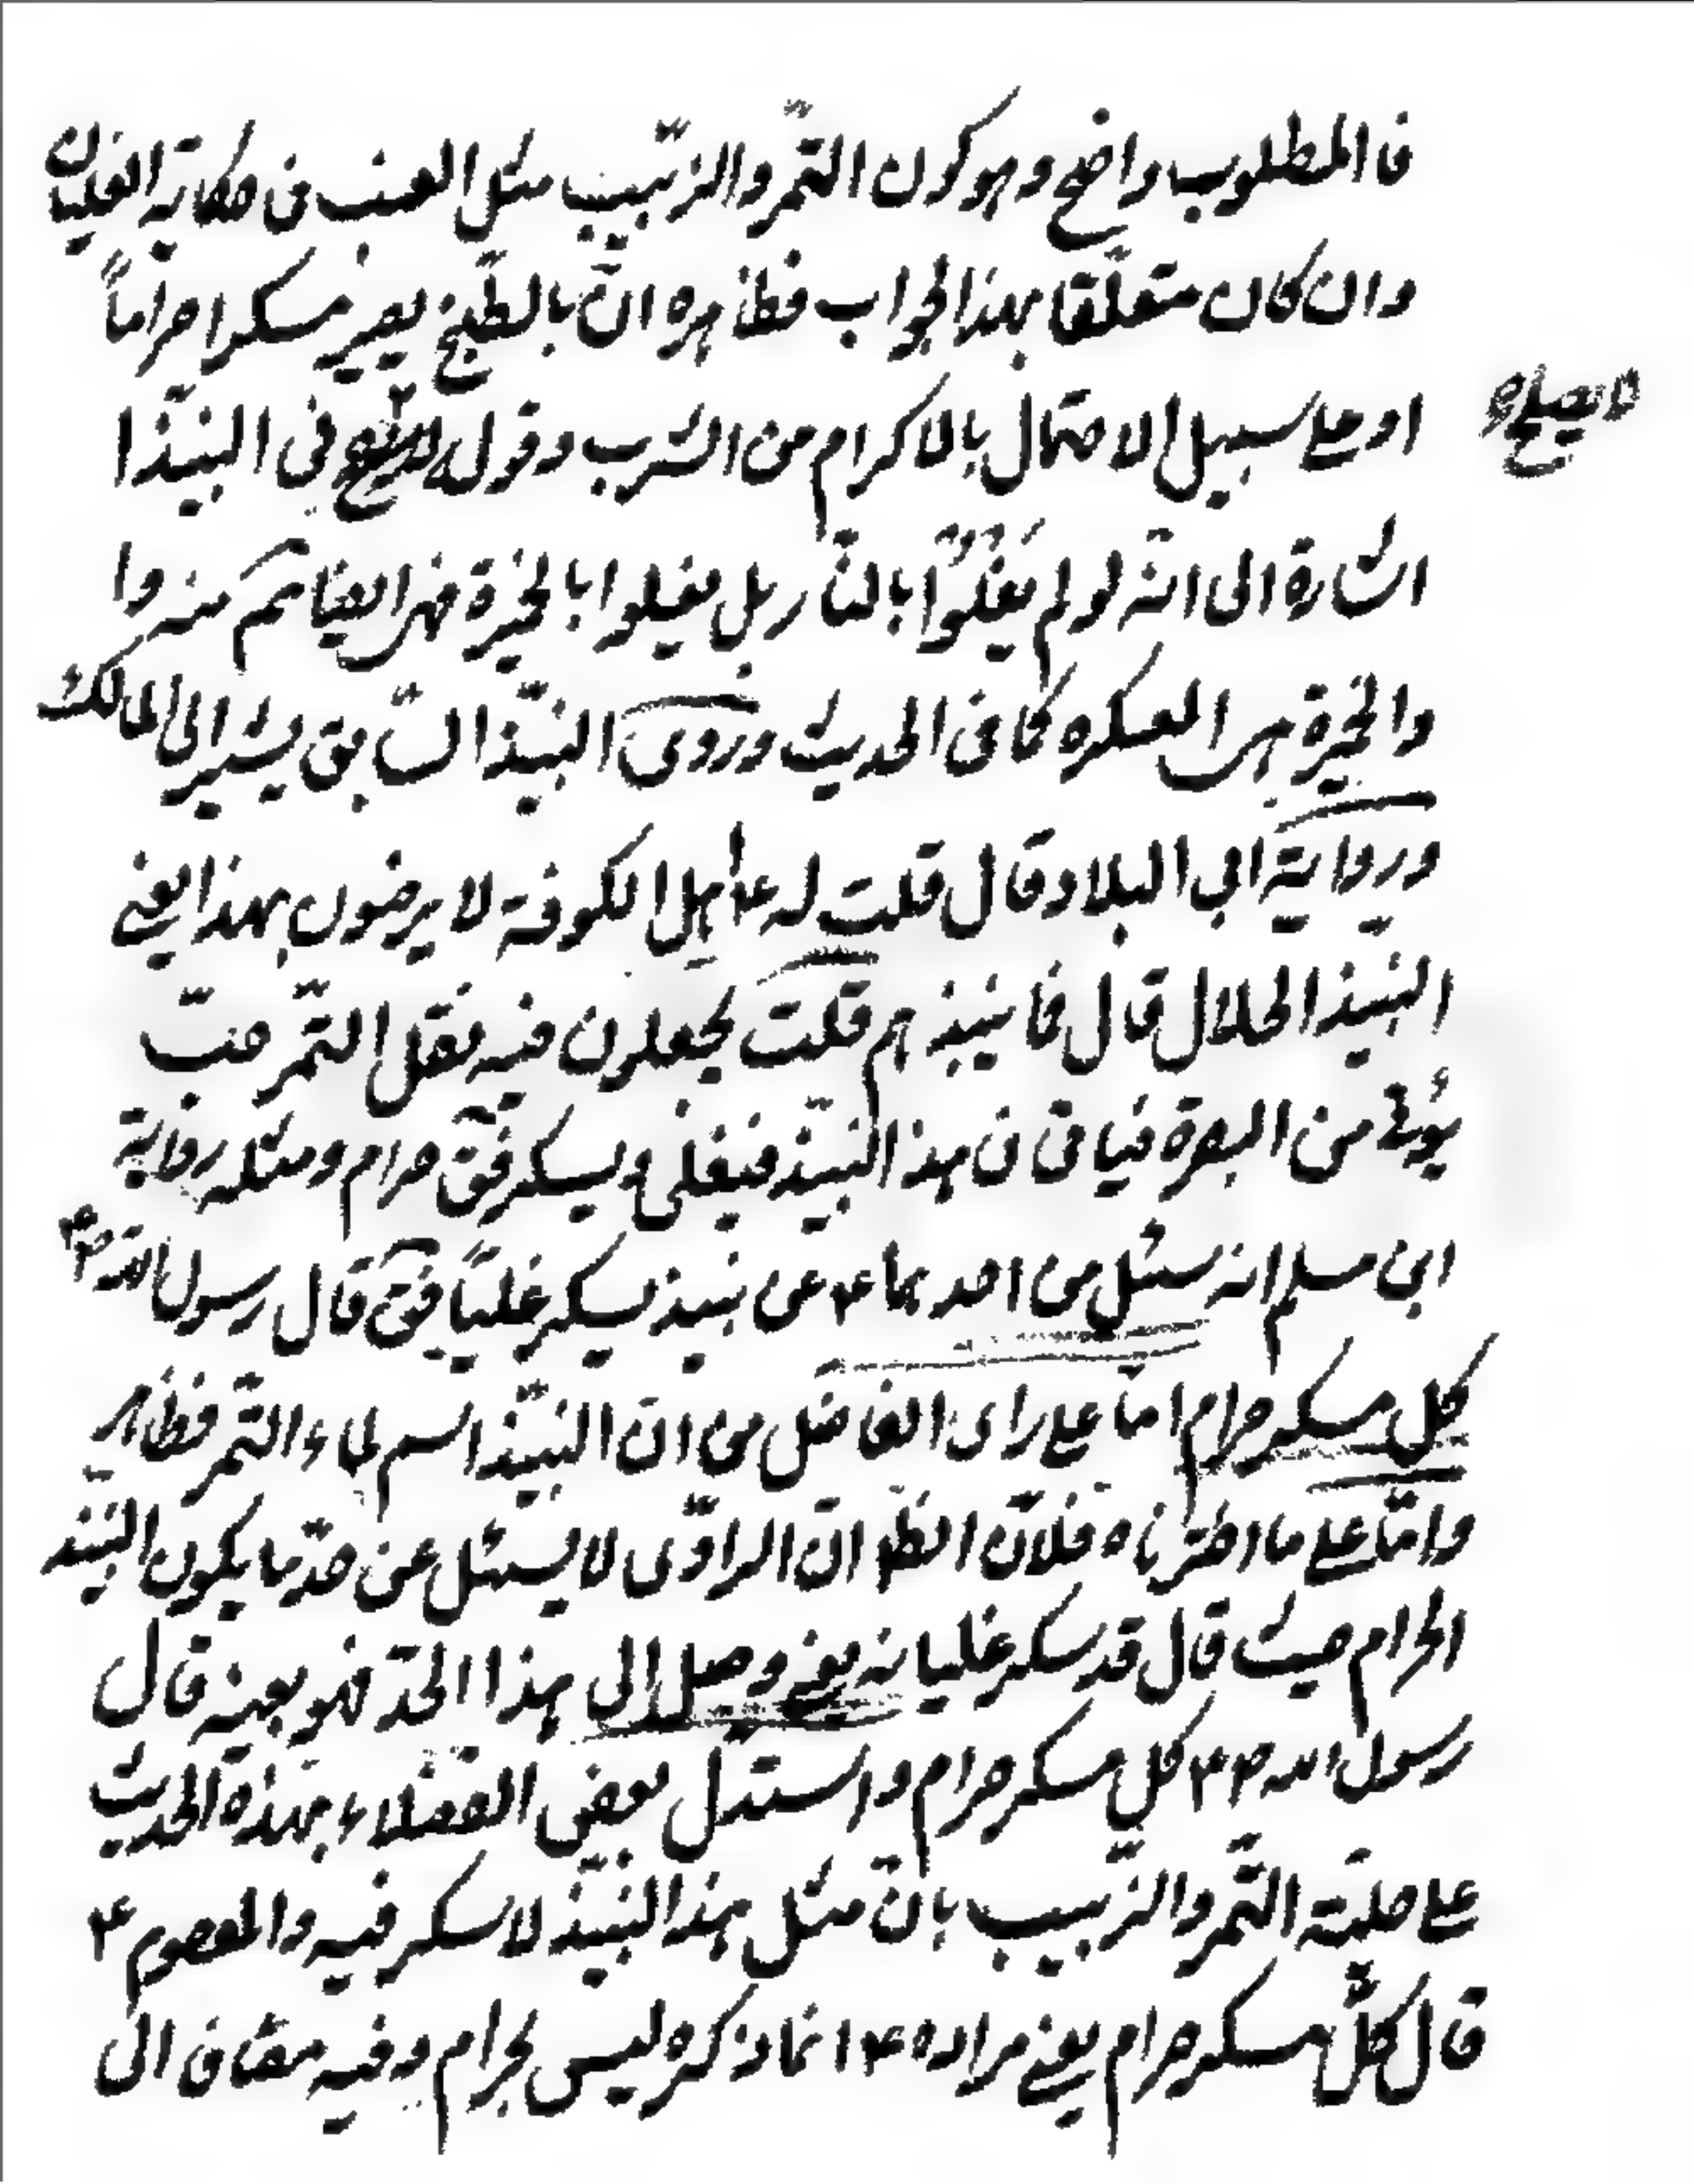 فالمطلوب واضح وهو كون التّمر والزّبيب مثل العنب فى حكاية الغليان
وان كان متعلّقا بهذا الجواب فظاهره انّ بالطّبخ يصير مسكرا حراماً
او على سبيل الاحتمال بالاكرام من الشرب وقول لا يصلح فى النبيّذا
لا يصلح
اشارة الى انّه لو لم يغلوا بالنّار بل يغلوا بالخمرة فهر ايضا تم منه وا
والخمرة هى العسكره كما فى الحديث وروى النبيّذ السّابق يشير الى المالك
ورواية ابى البلاد قال قلت له ع اهل الكوفة لا يرضون بهذا يعنى
النبيذ الحلال قال فما ينبذهم قلت يجعلون فيه ثفل التّمر حبّ
يؤتى من البصرة فياقى فى هذا النبيّذ فيغلى ويسكر فقّ حرام ومثله رواية
ابن مسلم انه سئل من احدهما ع عن نبيذ يسكر غلياً فقّ قال رسول الله ص
كل مسكر حرام امّا على راى الفاضل من انّ النبيّذ اسم لماء التّمر فظاهر
وامّا على ما اخترناه فلانّ الظّ انّ الراوّى لا يسئل عن حدّ ما يكون النبيّذ
الحرام حيث قال قد سكر غليانه يعنى وصل الى هذا الحدّ فهو بعينه قال
رسول الله ص كل مسكر حرام واستدلّ بعض الفضلاء بهذه الحديث
على حليّة التّمر والزّبيب بانّ مثل هذا النبيّذ لا سكر فيه والمعصوم ع
قال كلّ مسكر حرام يعنى مراده ع انما ذكره ليس بحرام وفيه مضافا الى